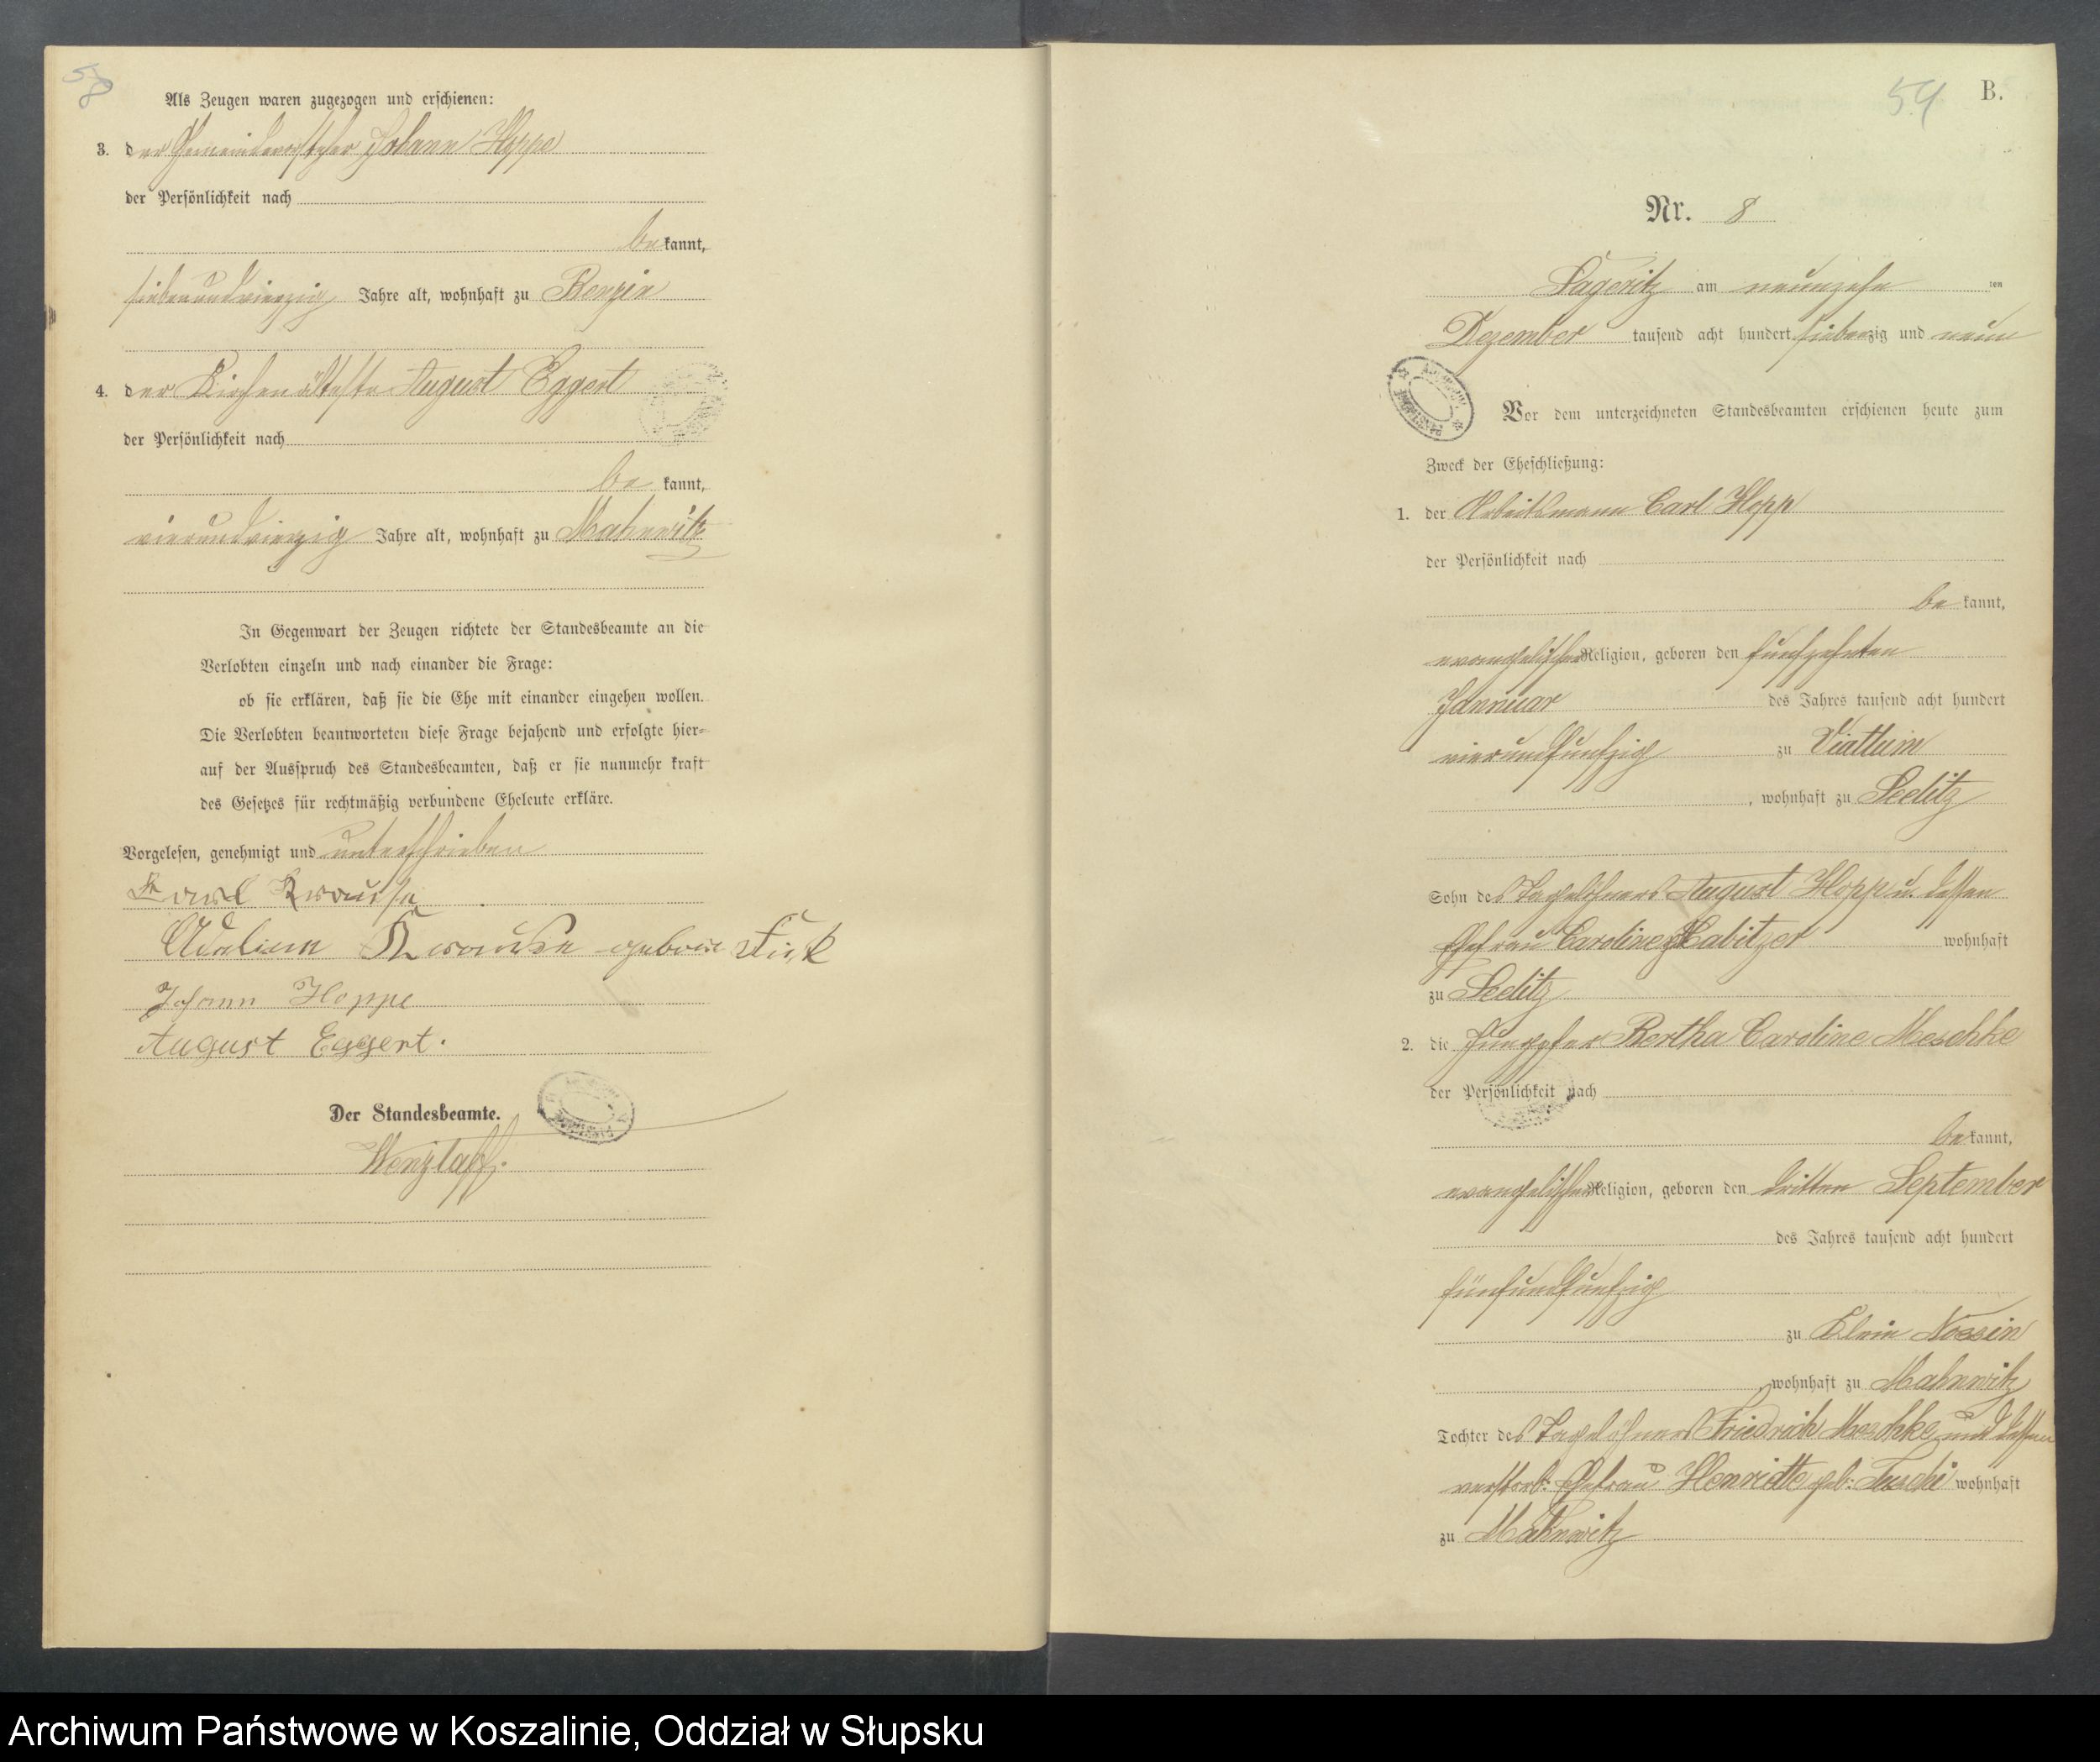 58
Als Zeugen waren zugezogen und erschienen:
3. der Gemeindevorsteher Johann Hoppe
der Persönlichkeit nach
bekannt,
siebenundvierzig Jahre alt, wohnhaft zu Benzin
4. der Kirchenälteste August Eggert
der Persönlichkeit nach
be kannt,
vierundvierzig Jahre alt, wohnhaft zu Mahnwitz
In Gegenwart der Zeugen richtete der Standesbeamte an die
Verlobten einzeln und nach einander die Frage:
ob sie erklären, daß sie die Ehe mit einander eingehen wollen.
Die Verlobten beantworteten diese Frage bejahend und erfolgte hier-
auf der Ausspruch des Standesbeamten, daß er sie nunmehr kraft
des Gesetzes für rechtmäßig verbundene Eheleute erkläre.
Vorgelesen, genehmigt und unterschrieben
Karl Krause
Krause geborene Fick
Johann Hoppe
August Eggert.
Der Standesbeamte.
Wenzlaff.
59 B.
Nr. 8
Sageritz am neunzehn ten
Dezember tausend acht hundert siebenzig und neun
Vor dem unterzeichneten Standesbeamten erschienen heute zum
Zweck der Eheschließung:
1. der Arbeitsmann Carl Hopp
der Persönlichkeit nach
be kannt,
evangelischer Religion, geboren den fünfzehnten
Januar des Jahres tausend acht hundert
vierundfünfzig zu Viattum
, wohnhaft zu Seelitz
Sohn des Tagelöhners August Hopp u. dessen
Ehefrau Caroline g. Labitzer wohnhaft
zu Seelitz
2. die Jungfer Bertha Caroline Meschke
der Persönlichkeit nach
bekannt,
evangelischer Religion, geboren den dritten September
des Jahres tausend acht hundert
fünfundfünfzig
zu Klein Nossin
, wohnhaft zu Mahnwitz
Tochter des Tagelöhners Friedrich Meschke und dessen
verstorb. Ehefrau Henriette geb. wohnhaft
zu Mahnwitz
Archiwum Państwowe w Koszalinie, Oddział w Słupsku